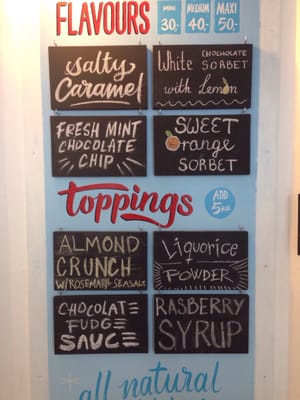 FLAVOURS
MINI 30,-
MEDIUM 40,-
MAXI 50,-
Salty
Caramel
White CHOHOLATE
SORBET
with Lemon
FRESH MINT
CHOCOLATE
CHIP
SWEET
orange
SORBET
toppings
ADD
5 KR
ALMOND
CRUNCH
W/ROSEMARY-SEASALT
Liquorice
POWDER
CHOCOLATE
FUDGE
SAUCE
RASBERRY
SYRUP
all natural